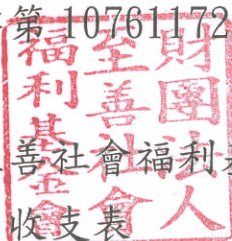 第 10761172
財團法人
至善社會
福利基金會
善社會福利基
收支表